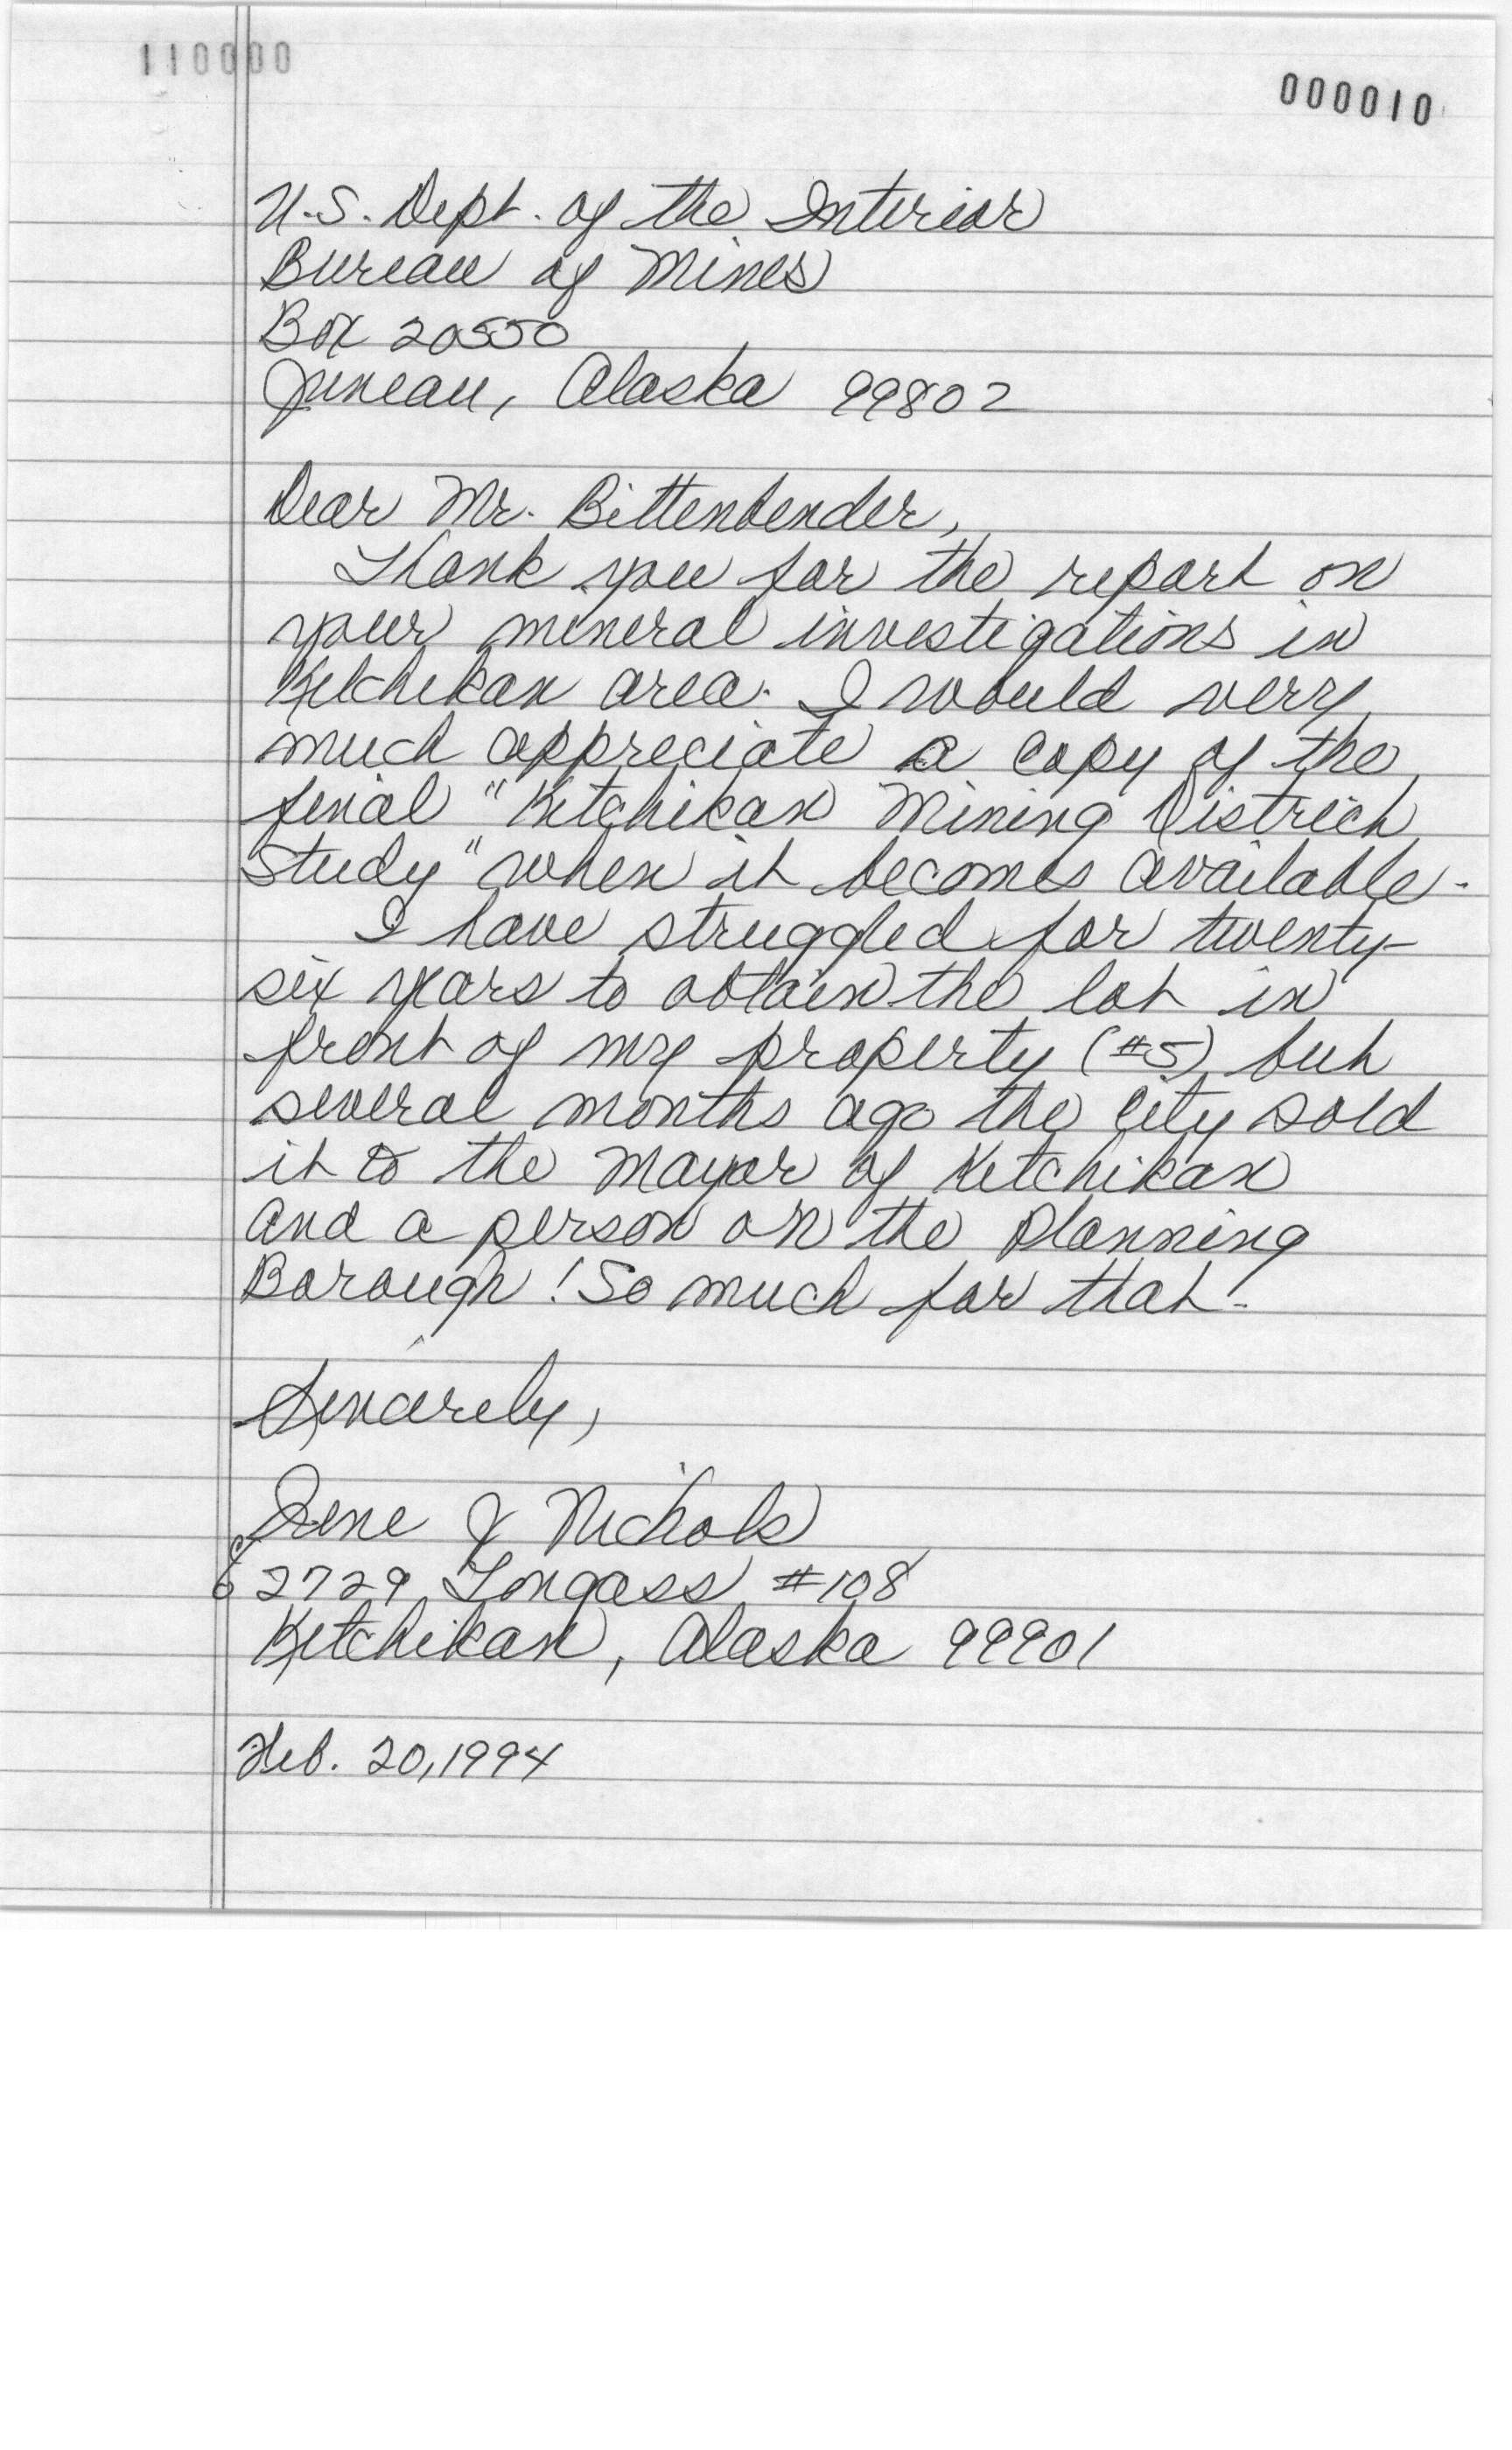 110000
000010
U.S. Dept. of the Interior
Bureau of Mines
Box 20550
Juneau, Alaska 99802
Dear Mr. Bittenbender,
Thank you for the report on
your mineral investigations in
Ketchikan area. I would very
much appreciate a copy of the
final "Ketchikan Mining District
Study" when it becomes available.
I have struggled for twenty-
six years to obtain the lot in
front of my property (#5) but
several months ago the city sold
it to the Mayor of Ketchikan
and a person on the Planning
Borough! So much for that.
Sincerely,
Irene J Nichols
2729 Tongass #108
Ketchikan, Alaska 99901
Feb. 20, 1994